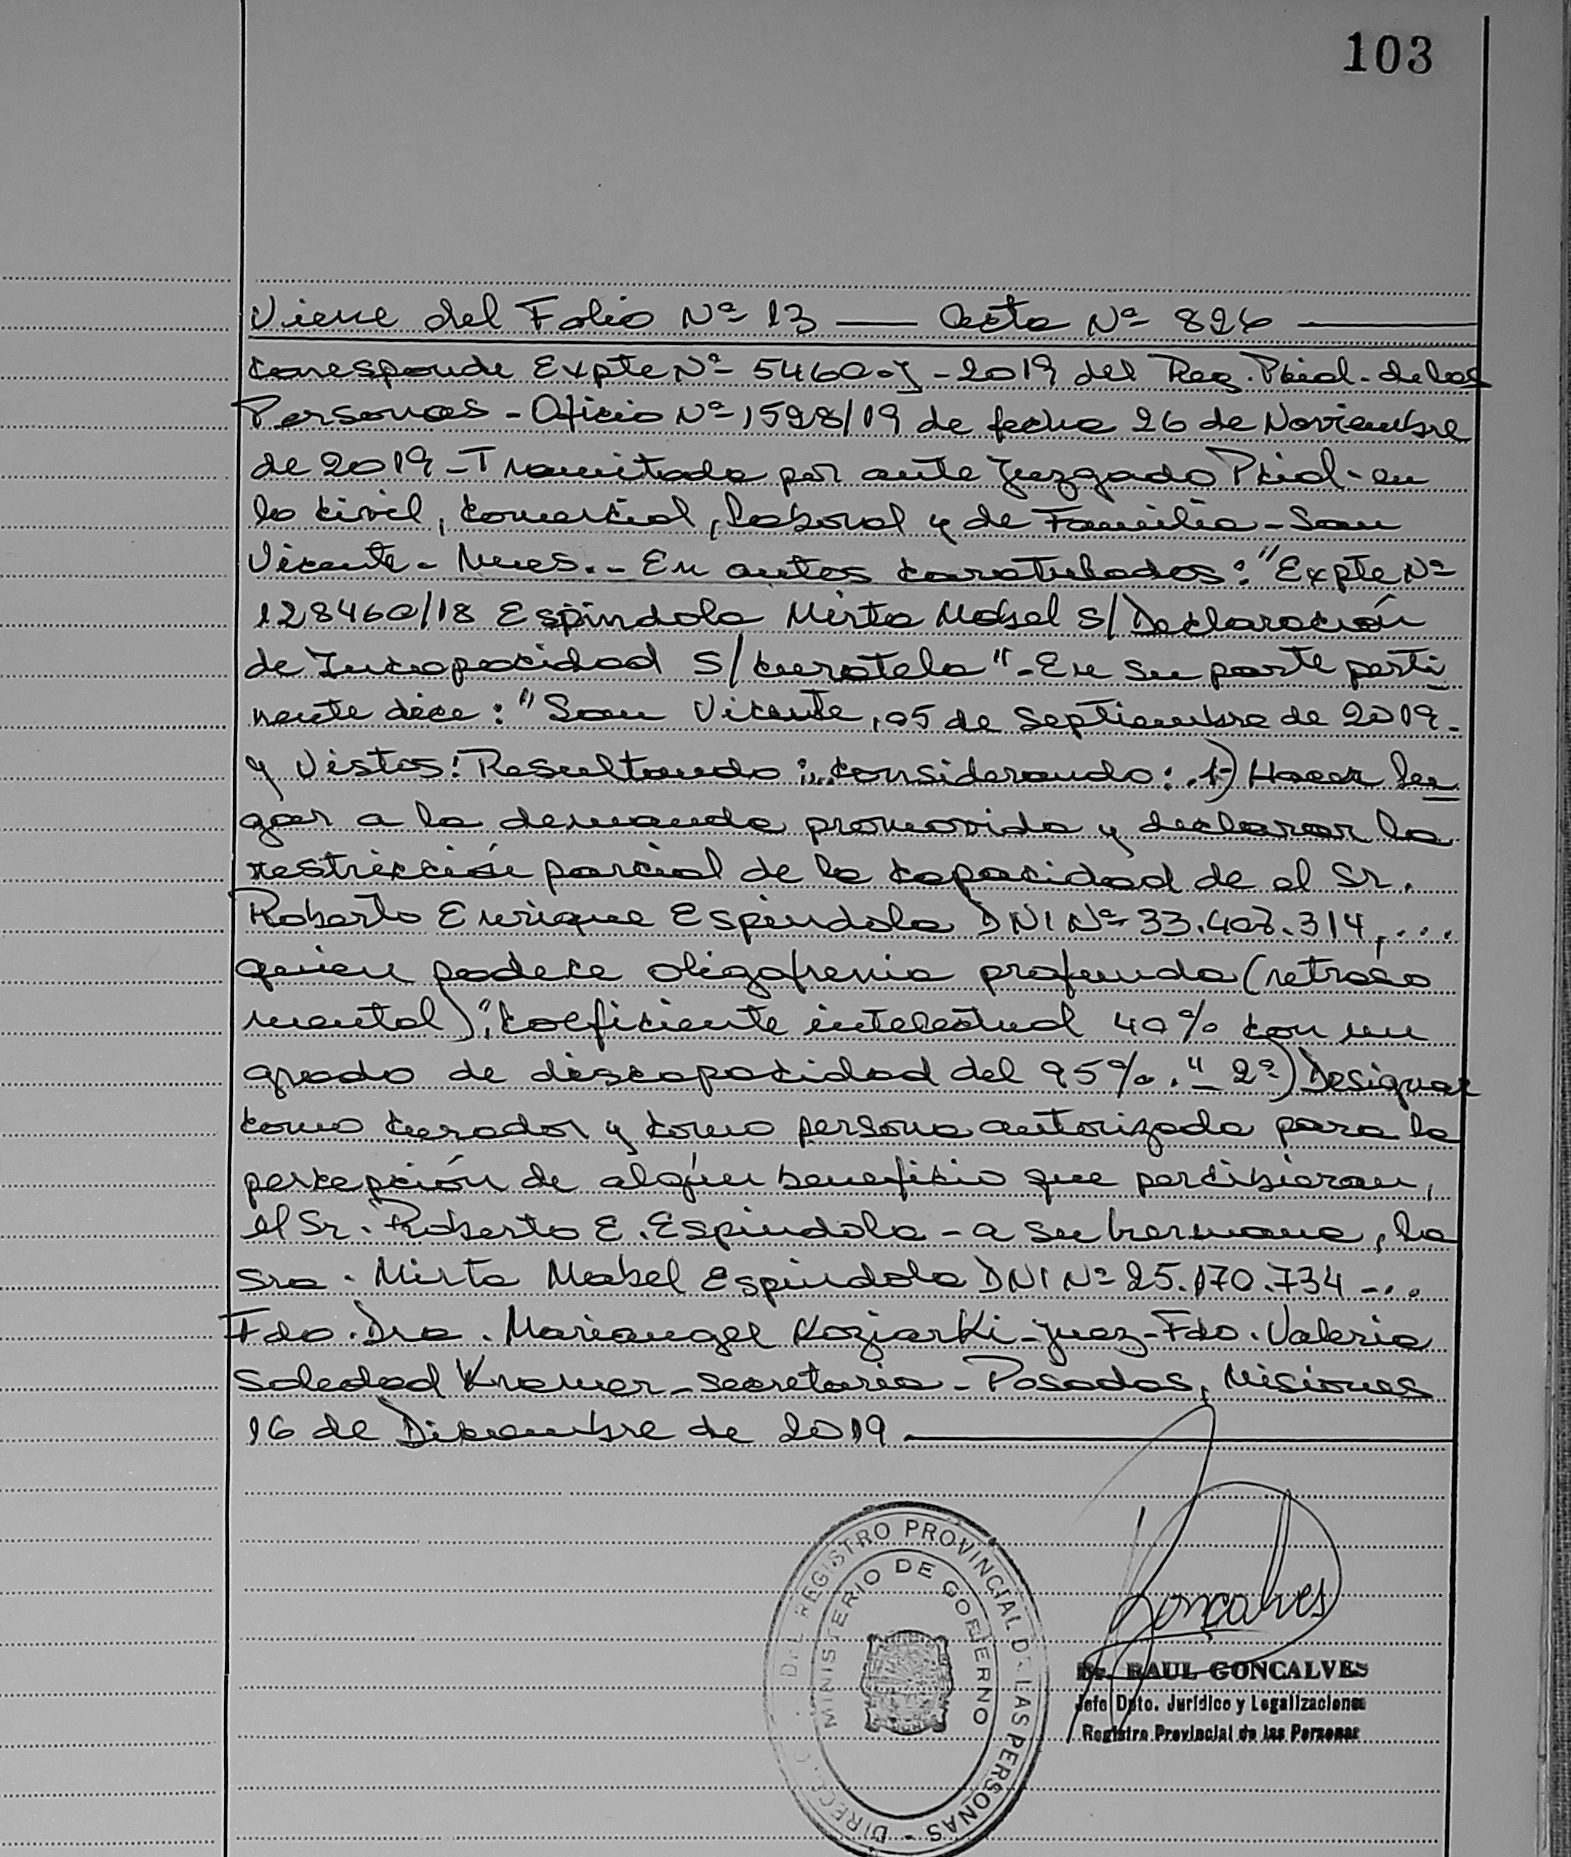 103
Viene del Folio Nº 13 — Acta Nº 826 —
Corresponde Expte Nº 5460-J-2019 del Reg. Pcial. de las
Personas - Oficio Nº 1598/19 de fecha 26 de Noviembre
de 2019 - Tramitada por ante Juzgado Pcial - en
lo Civil, Comercial, Laboral y de Familia - San
Vicente - Mnes. - En autos caratulados: "Expte Nº
128460/18 Espindola Mirta Mabel S/Declaración
de Incapacidad S/curatela" - En su parte perti
nente dice: "San Vicente, 05 de Septiembre de 2019.
y Vistos: Resultando:... Considerando: .1-) Hacer lu
gar a la demanda promovida y declarar la
restricción parcial de la capacidad de el Sr.
Roberto Enrique Espindola DNI Nº 33.407.314, ...
quien padece oligofrenia profunda (retraso
mental)", Coeficiente intelectual 40% con un
grado de discapacidad del 95%." 2º) Designar
como Curador y como persona autorizada para la
percepción de algún beneficio que percibieran,
el Sr. Roberto E. Espindola - a su hermana, la
Sra. Mirta Mabel Espindola DNI Nº 25.170.734 - ...
Fdo. Dra. Mariangel Koziarki - Juez - Fdo. Valeria
Soledad Kramer - Secretaria - Posadas, Misiones
16 de Diciembre de 2019.
DIREC. G. DEL REGISTRO PROVINCIAL DE LAS PERSONAS -
MINISTERIO DE GOBIERNO
Gonçalves
Dr. RAUL GONCALVES
Jefe Dpto. Jurídico y Legalizaciones
Registro Provincial de las Personas